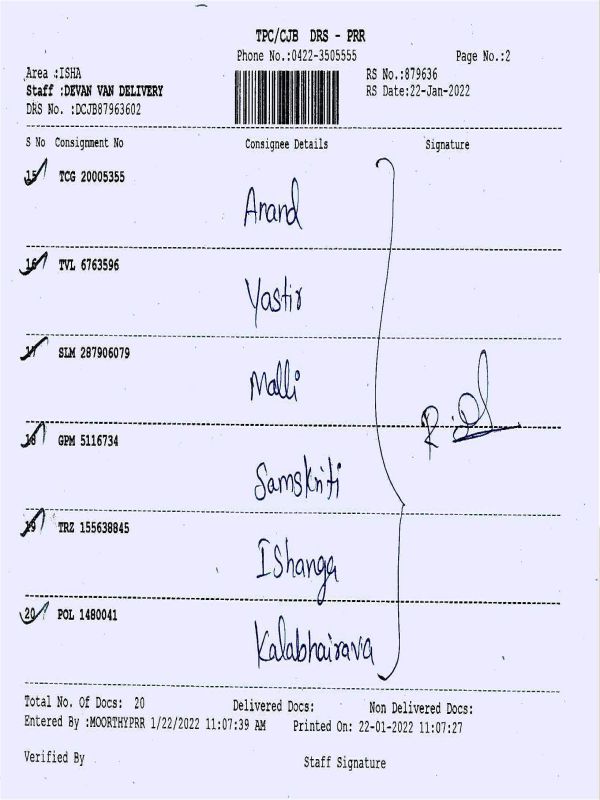 TPC/CJB DRS - PRR
Phone No.:0422-3505555 Page No.:2
Area :ISHA RS No.:879636
Staff :DEVAN VAN DELIVERY RS Date:22-Jan-2022
DRS No. :DCJB87963602
S No Consignment No Consignee Details Signature
15 TCG 20005355
Anand
16 TVL 6763596
Yastir
17 SLM 287906079
Malli
18 GPM 5116734
Samskriti
19 TRZ 155638845
IShanga
20 POL 1480041
Kalabhairava
Total No. Of Docs: 20 Delivered Docs: Non Delivered Docs:
Entered By :MOORTHYPRR 1/22/2022 11:07:39 AM Printed On: 22-01-2022 11:07:27
Verified By Staff Signature